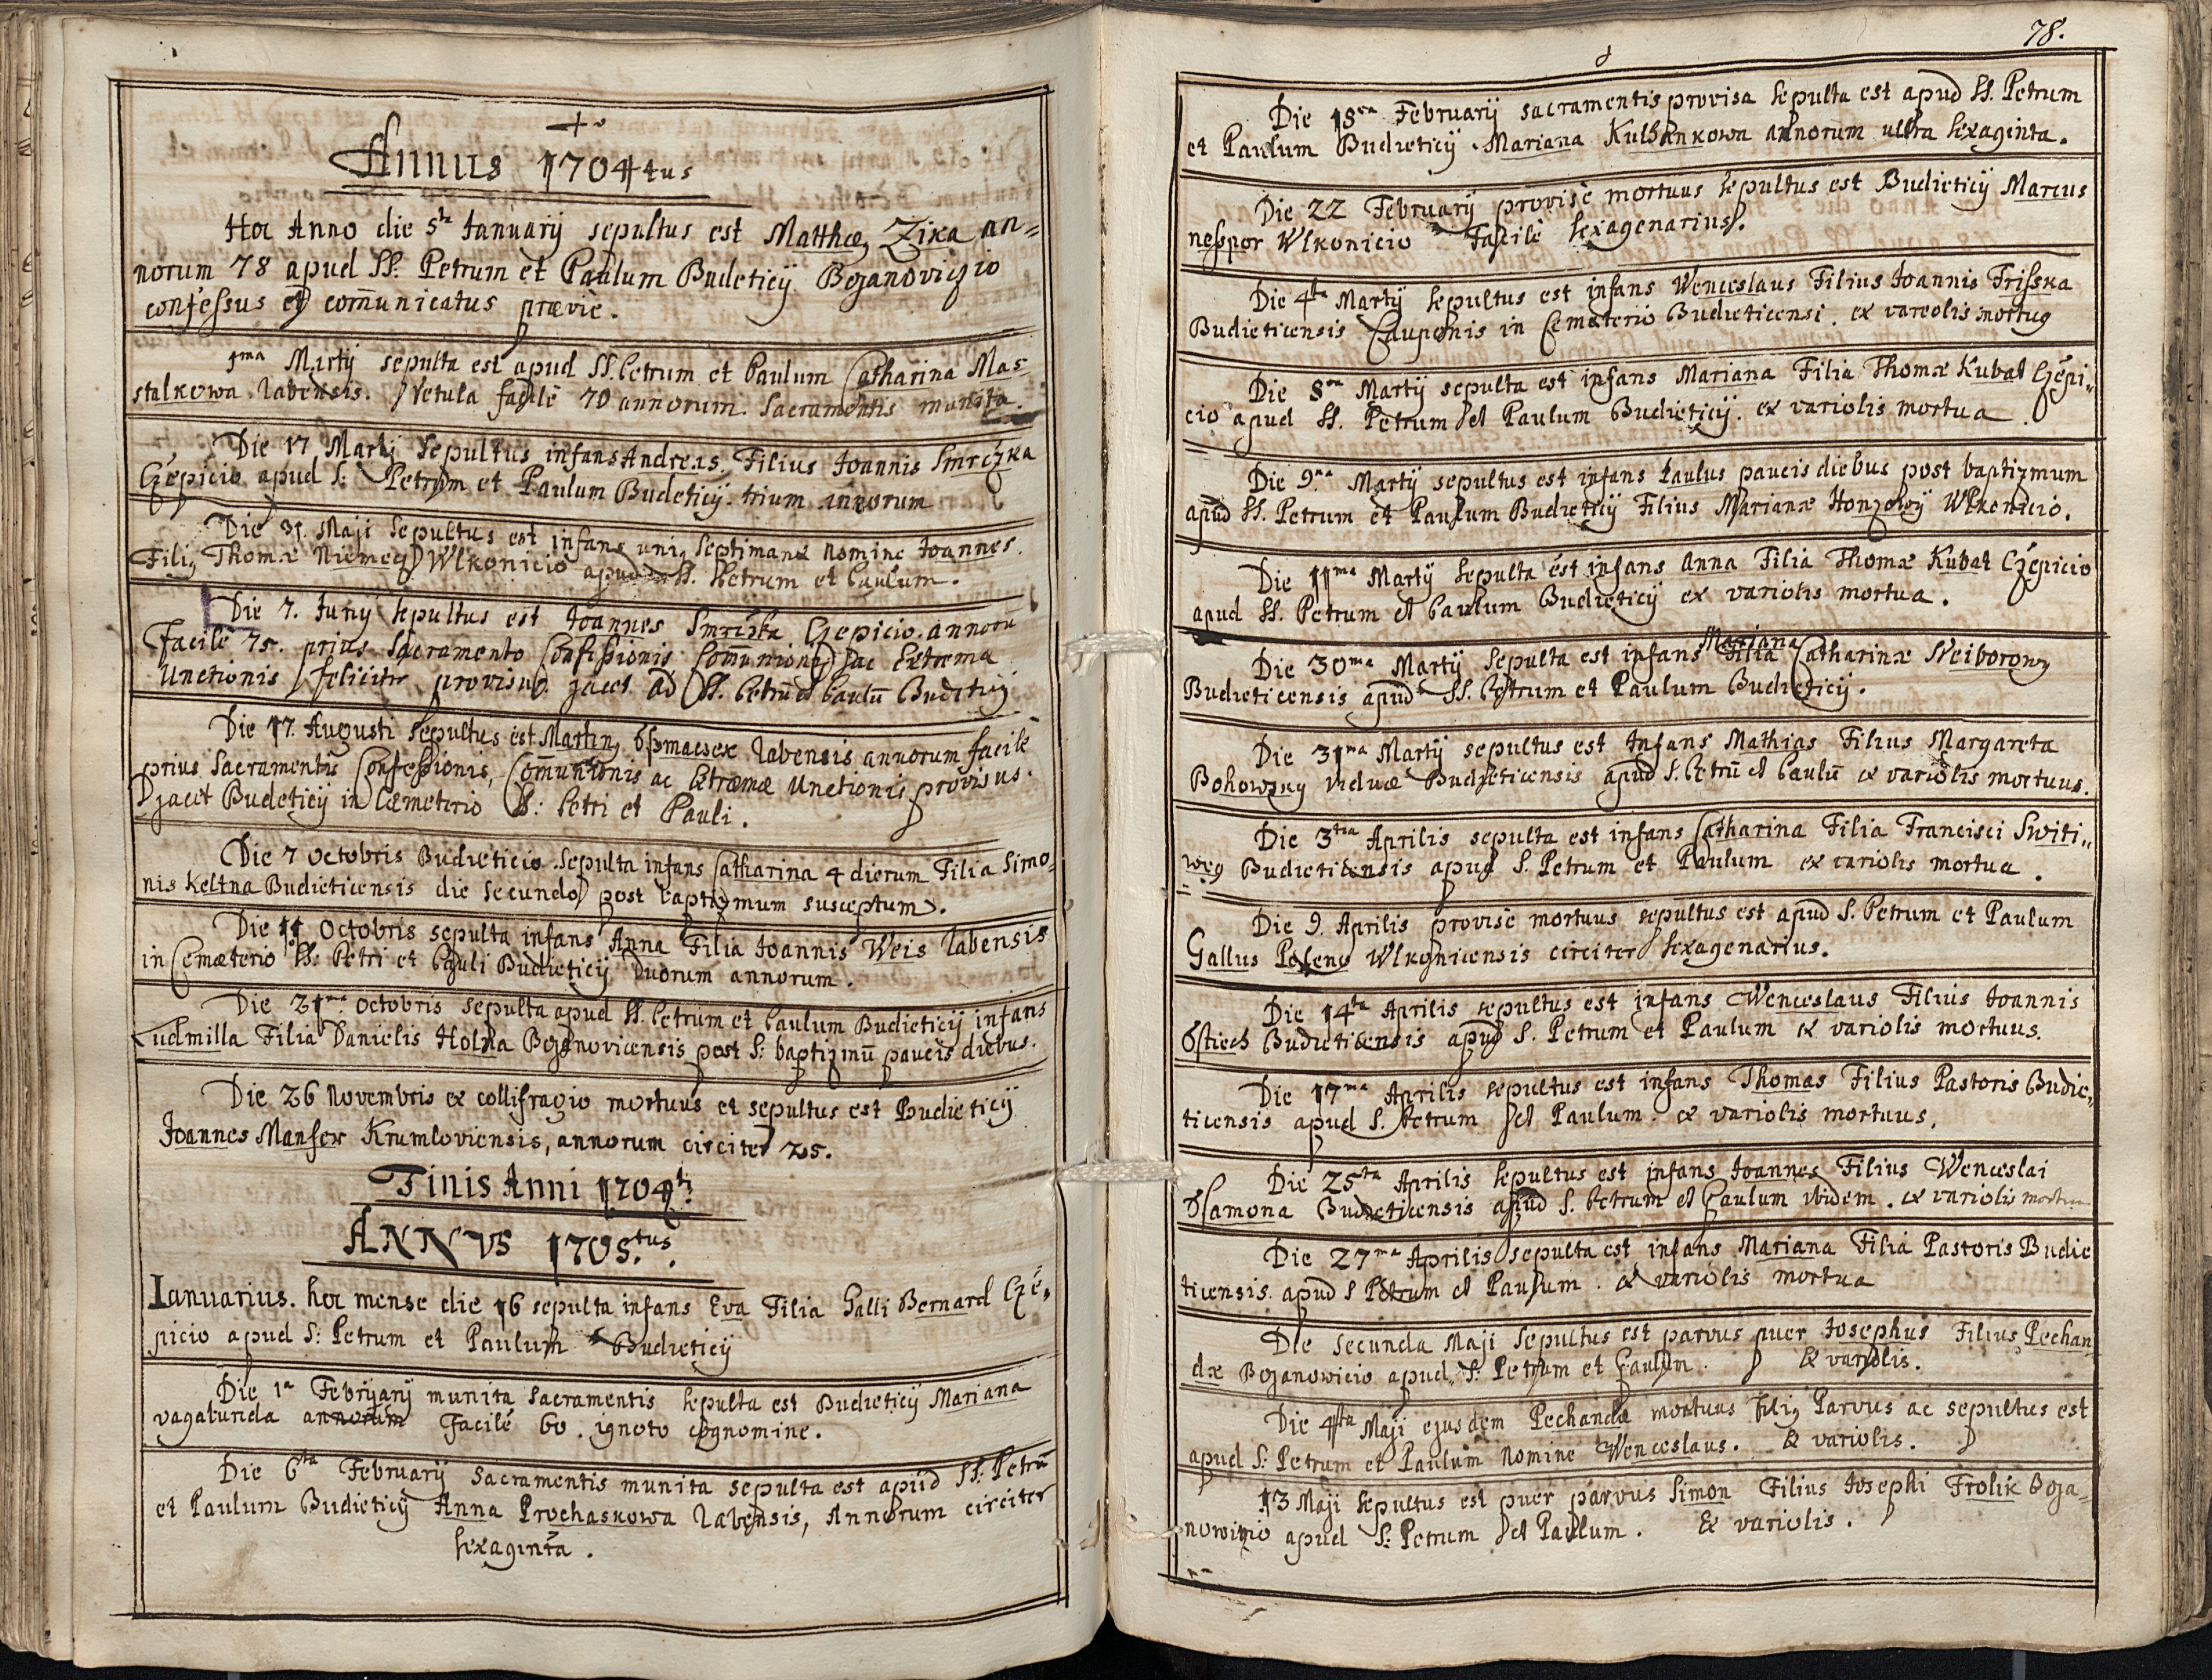 Annus 1704tus
Hoc Anno die 5ta Januarij sepultus est Matthæ9 Zika an=
norum 78 apud SS. Petrum et Paulum Budeticij Bojanoviczio
confessus et com̄unicatus prævie.
1ma Martij sepulta est apud SS. Petrum et Paulum Catharina Mas=
stalkowa Rabensis. Vetula facile 70 annorum. Sacramentis munita.
Die 17 Martij Sepultus infans Andreas. Filius Joannis Smrczka
Czepicio apud S: Petrum et Paulum Budeticij. trium annorum
Die 31. Maji Sepultus est infans uni9 Septimanæ nomine Joannes.
Fili9 Thomæ Niemecz Wlkonicio apud SS. Petrum et Paulum.
Die 7. Junij sepultus est Joannes Smrczka Czepicio. annorū
Facile 75. prius Sacramento Confessionis Com̄unionis ac Extrema
Unctionis feliciter provisus. jacet ad SS. Petrū et Paulū Budeticij
Die 17. Augusti Sepultus est Martin9 Rabensis annorum facile
prius Sacramentis Confessionis, Com̄unionis ac Extremæ Unctionis provisus.
jacet Budeticij in Cæmeterio SS: Petri et Pauli.
Die 7 Octobris Budieticio Sepulta infans Catharina 4 dierum Filia Simo=
nis Keltna Budieticensis die secundo post baptizmum susceptum.
Die 11 Octobris sepulta infans Anna Filia Joannis Weis Rabensis
in Cemæterio SS: Petri et Pauli Budieticij Duorum annorum.
Die 21ma Octobris sepulta apud SS. Petrum et Paulum Budieticij infans
Ludmilla Filia Danielis Holna Bojanovicensis post S: baptizmū paucis diebus.
Die 26 Novembris ex collifragio mortuus et sepultus est Budieticij
Joannes Manser Krumloviensis, annorum circiter 25.
Finis Anni 1704ti
ANNVS 1705.tus.
Ianuarius. hoc mense die 16 sepulta infans Eva Filia Galli Bernard Cze=
picio apud S: Petrum et Paulum Budieticij
Die 1a Februarij munita Sacramentis Sepulta est Budieticij Mariana
vagabunda annorum Facile 60. ignoto cognomine.
Die 6ta Februarij Sacramentis munita sepulta est apud SS: Petrū
et Paulum Budieticij Anna Prochaskowa Rabensis, Annorum circiter
sexaginta.
78.
Die 18va Februarij sacramentis provisa sepulta est apud SS. Petrum
et Paulum Budieticij. Mariana Kulhankowa annorum ultra sexaginta.
Die 22 Februarij provise mortuus sepultus est Budieticij Marcus
nesspor Wlkonicio Facile sexagenarius.
Die 4ta Martij sepultus est infans Wenceslaus Filius Joannis Frisska
Budieticensis Cauponis in Cemæterio Budieticensi. ex vareolis mortu9
Die 8va Martij sepulta est infans Mariana Filia Thomæ Kubat Czépi=
cio apud SS. Petrum et Paulum Budieticij. ex variolis mortua.
Die 9na Martij sepultus est infans Paulus paucis diebus post baptizmum
apud SS. Petrum et Paulum Budieticij Filius Marianæ Wlkonicio.
Die 11ma Martij Sepulta est infans Anna Filia Thomæ Kubat Czépicio
apud SS. Petrum et Paulum Budieticij ex variolis mortua.
Mariana
Die 30ma Martij Sepulta est infans Filia Catharinæ
Budieticensis apud SS. Petrum et Paulum Budieticij.
Die 31ma Martij sepultus est Infans Mathias Filius Margareta
Viduæ Budieticensis apud S. Petrū et Paulū ex variolis mortuus.
Die 3tia Aprilis sepulta est infans Catharina Filia Francisci Switi=
wey Budieticensis apud S. Petrum et Paulum ex variolis mortua.
Die 9. Aprilis provise mortuus sepultus est apud S. Petrum et Paulum
Gallus Wlkonicensis circiter sexagenarius.
Die 14ta Aprilis sepultus est infans Wenceslaus Filius Joannis
Budieticensis apud S. Petrum et Paulum ex variolis mortuus.
Die 17ma Aprilis sepultus est infans Thomas Filius Pastoris Budie=
ticensis apud S. Petrum et Paulum. ex variolis mortuus.
Die 25ta Aprilis Sepultus est infans Joannes Filius Wenceslai
Budieticensis apud S. Petrum et Paulum ibidem. ex variolis
Die 27ma Aprilis sepulta est infans Mariana Filia Pastoris Budie
ticensis. apud S Petrum et Paulum. ex variolis mortua
Die secunda Maji Sepultus est parvus puer Josephus Filius Pechan
dæ Bojanowicio apud S: Petrum et Paulum. Ex variolis.
Die 4ta Maji ejusdem Pechandæ mortuus Fili9 Parvus ac sepultus est
apud S: Petrum et Paulum Nomine Wenceslaus. Ex variolis.
13 Maji Sepultus est puer parvus Simon Filius Josephi Frolik Boja=
nowizio apud S: Petrum et Paulum. Ex variolis.